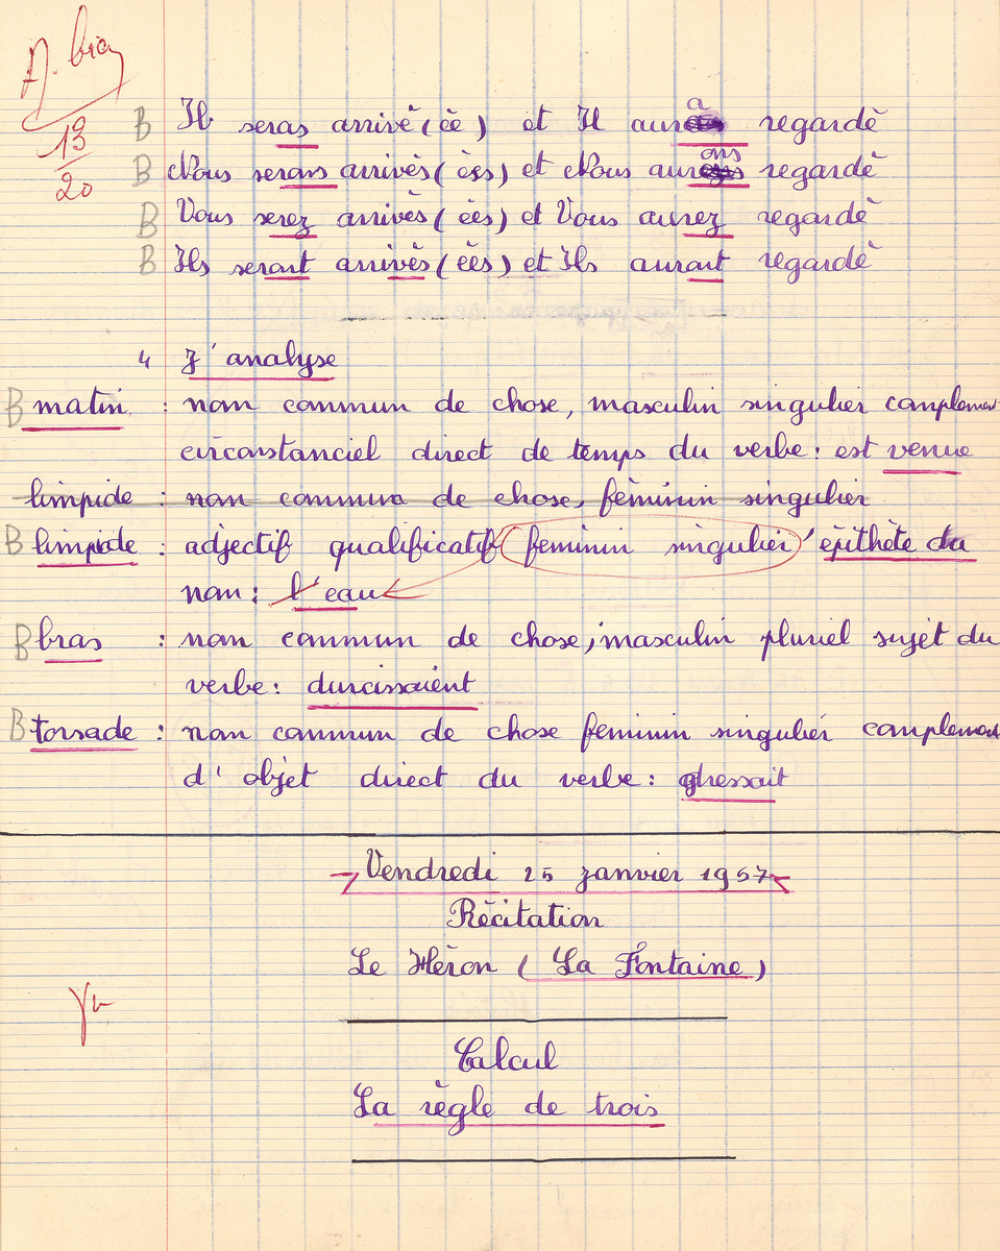 A. bien
13
20
B Il seras arrivé (ée) et Il aura regardé
B Nous serons arrivés (ées) et Nous aurons regardé
B Vous serez arrivés (ées) et Vous aurez regardé
B Ils seront arrivés (ées) et Ils auront regardé
4 J'analyse
B matin : nom commun de chose, masculin singulier complement
circonstanciel direct de temps du verbe : est venue
limpide : nom commun de chose, féminin singulier
B limpide : adjectif qualificatif feminin singulier, épithète du
nom : l'eau
B bras : nom commun de chose, masculin pluriel sujet du
verbe : durcissaient
B torsade : nom commun de chose feminin singulier complement
d'objet direct du verbe : dressait
Vendredi 25 janvier 1957
Récitation
Le Héron (La Fontaine)
Vu
Calcul
La règle de trois